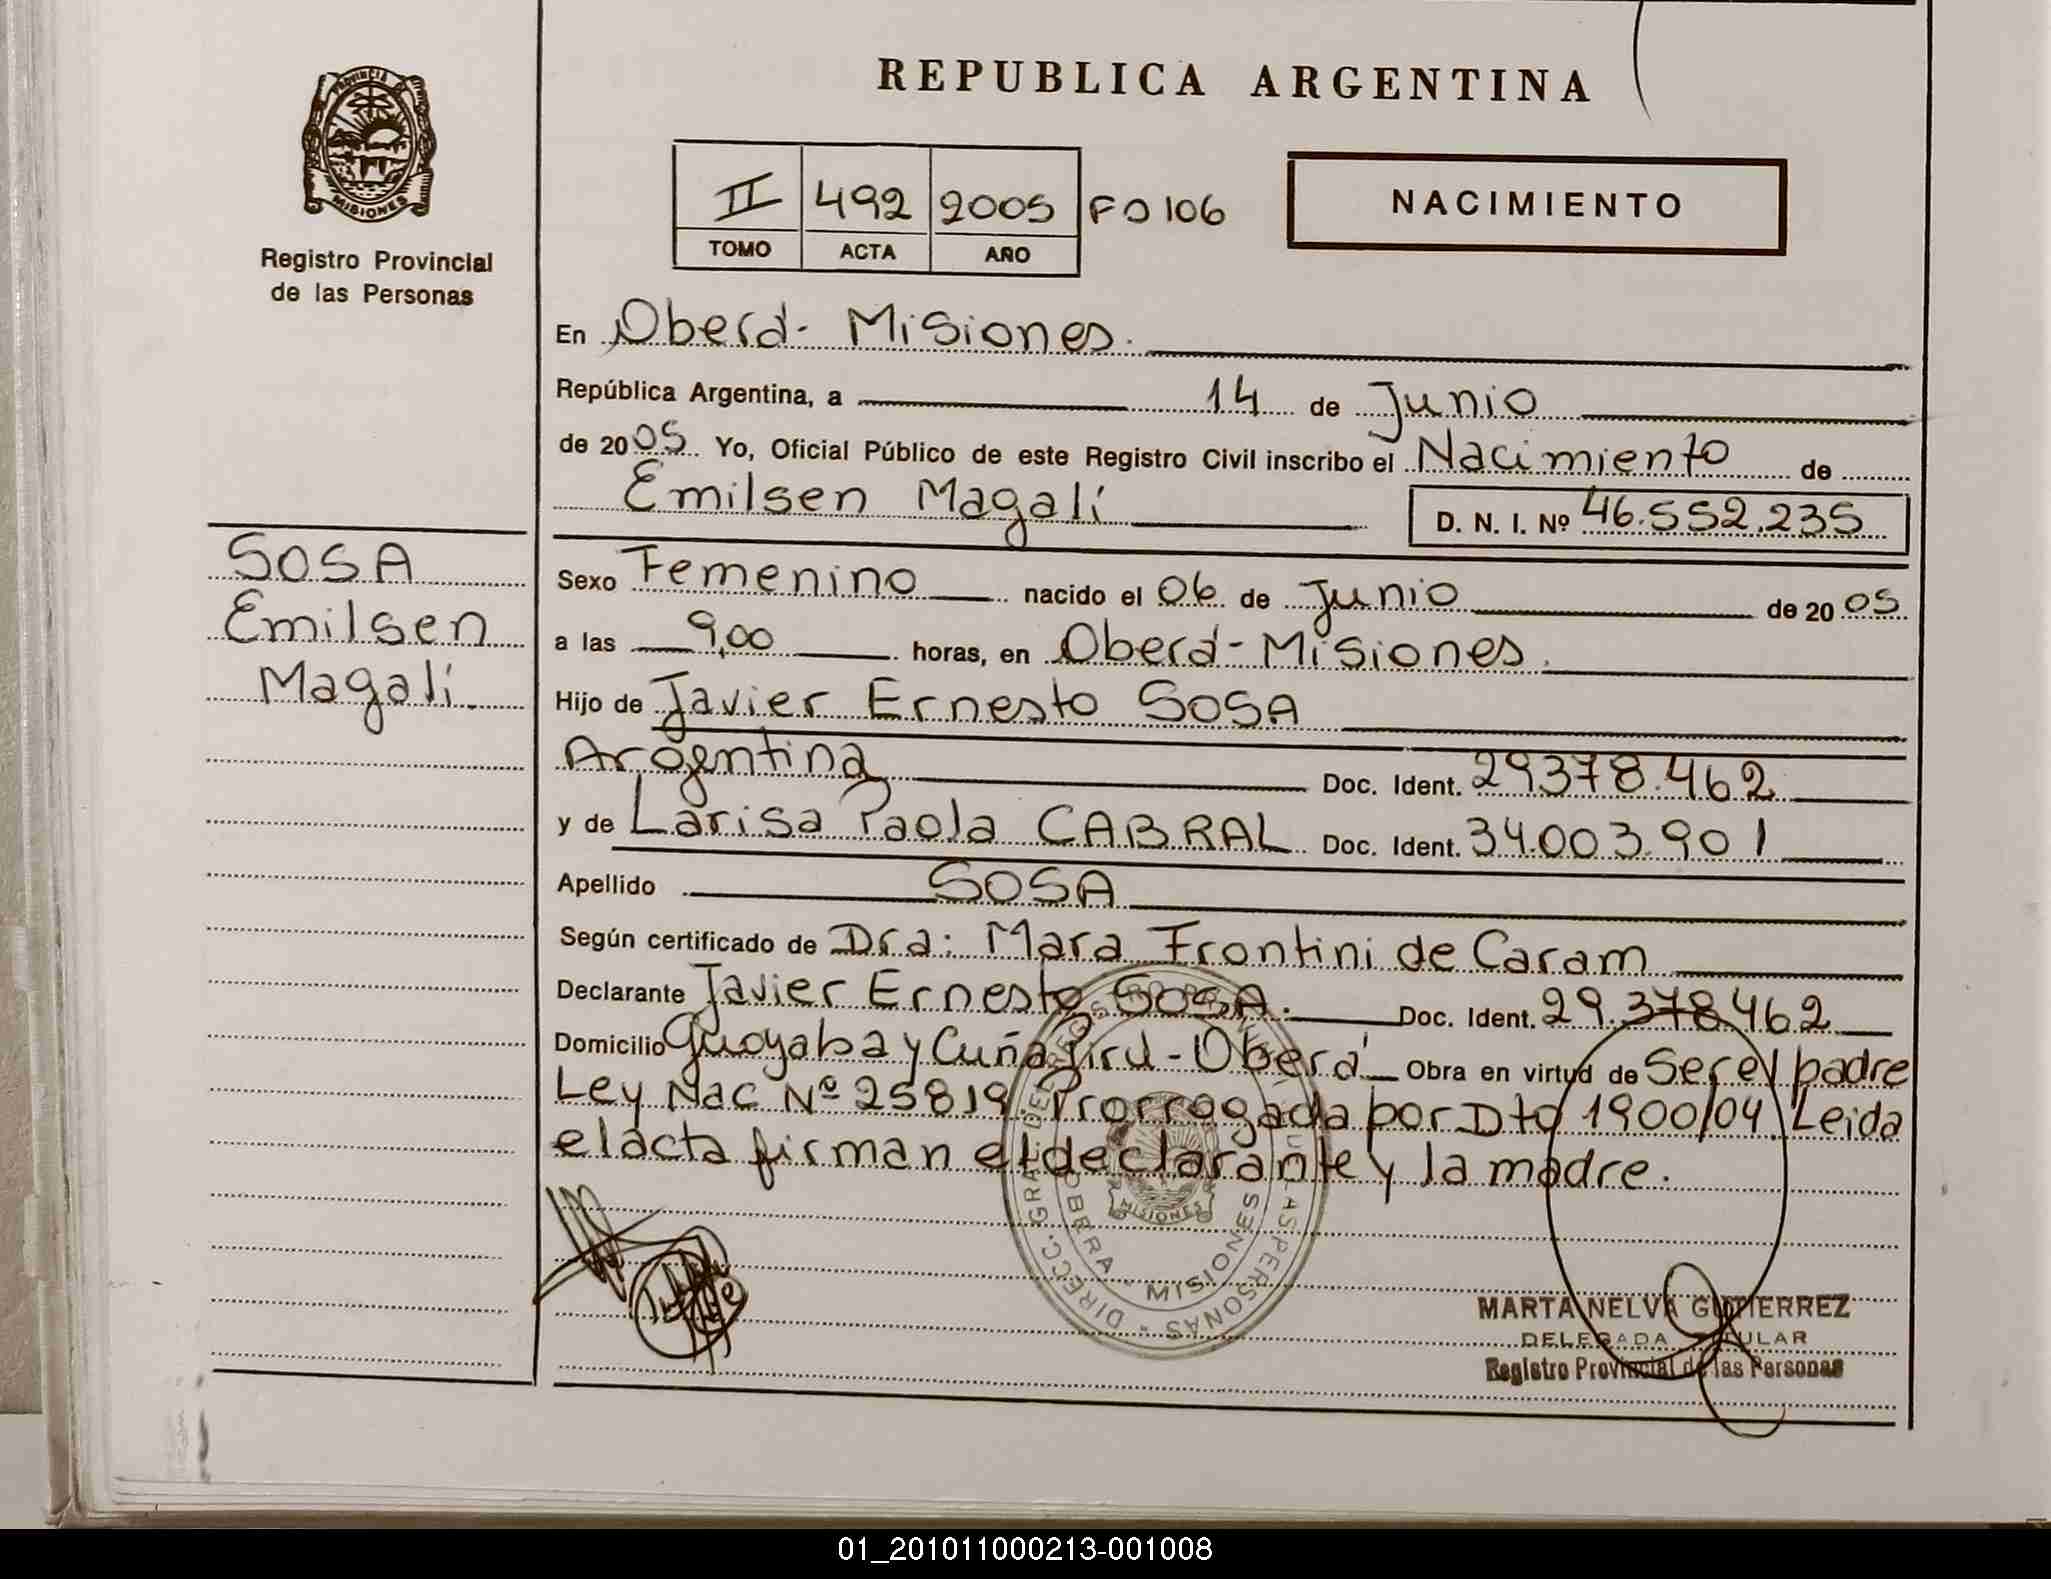 REPUBLICA ARGENTINA
PROVINCIA
MISIONES
Registro Provincial
de las Personas
II 492 2005 FO 106
TOMO ACTA AÑO
NACIMIENTO
En Oberá- Misiones.
República Argentina, a 14 de Junio
de 2005 Yo, Oficial Público de este Registro Civil inscribo el Nacimiento de
Emilsen Magalí D. N. I. Nº 46.552.235
SOSA
Emilsen
Magalí.
Sexo Femenino nacido el 06 de Junio de 2005
a las 9,00 horas, en Oberá-Misiones.
Hijo de Javier Ernesto SOSA
Argentina Doc. Ident. 29.378.462
y de Larisa Paola CABRAL Doc. Ident. 34.003.901
Apellido SOSA
Según certificado de Dra: Mara Frontini de Caram
Declarante Javier Ernesto SOSA. Doc. Ident. 29.378.462
Domicilio Guayaba y Cuña Pirú-Oberá Obra en virtud de Ser el padre
Ley Nac Nº 25819. Prorrogada por Dto 1900/04. Leida
el acta firman el declarante y la madre.
DIRECC. GRAL. DE REGISTRO PROVINCIAL DE LAS PERSONAS
OBERA - MISIONES
MISIONES
MARTA NELVA GUTIERREZ
DELEGADA TITULAR
Registro Provincial de las Personas
01_201011000213-001008